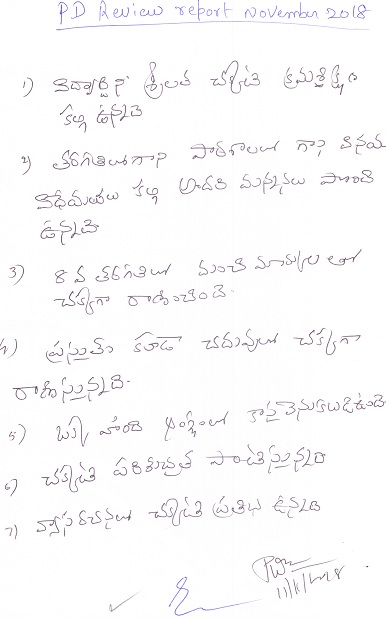 PD Review report november 2018
1) విద్యార్థిని శ్రీలత చక్కటి క్రమశిక్షణ
కల్గి ఉన్నది
2) తరగతిలోగాని పాఠశాలలో గాని వినయ
విధేయతలు కల్గి అందరి మన్ననలు పొంది
ఉన్నది
3) 8 వ తరగతిలో మంచి మార్కుల తో
చక్కగా రాణించింది.
4) ప్రస్తుతం కూడా చదువులో చక్కగా
రాణిస్తున్నది.
5) ఇంగ్లీషులో కాస్త వెనుకబడి ఉంది
6) చక్కటి పరిశుభ్రత పాటిస్తున్నది
7) వ్యాసరచనలో చక్కటి ప్రతిభ ఉన్నది